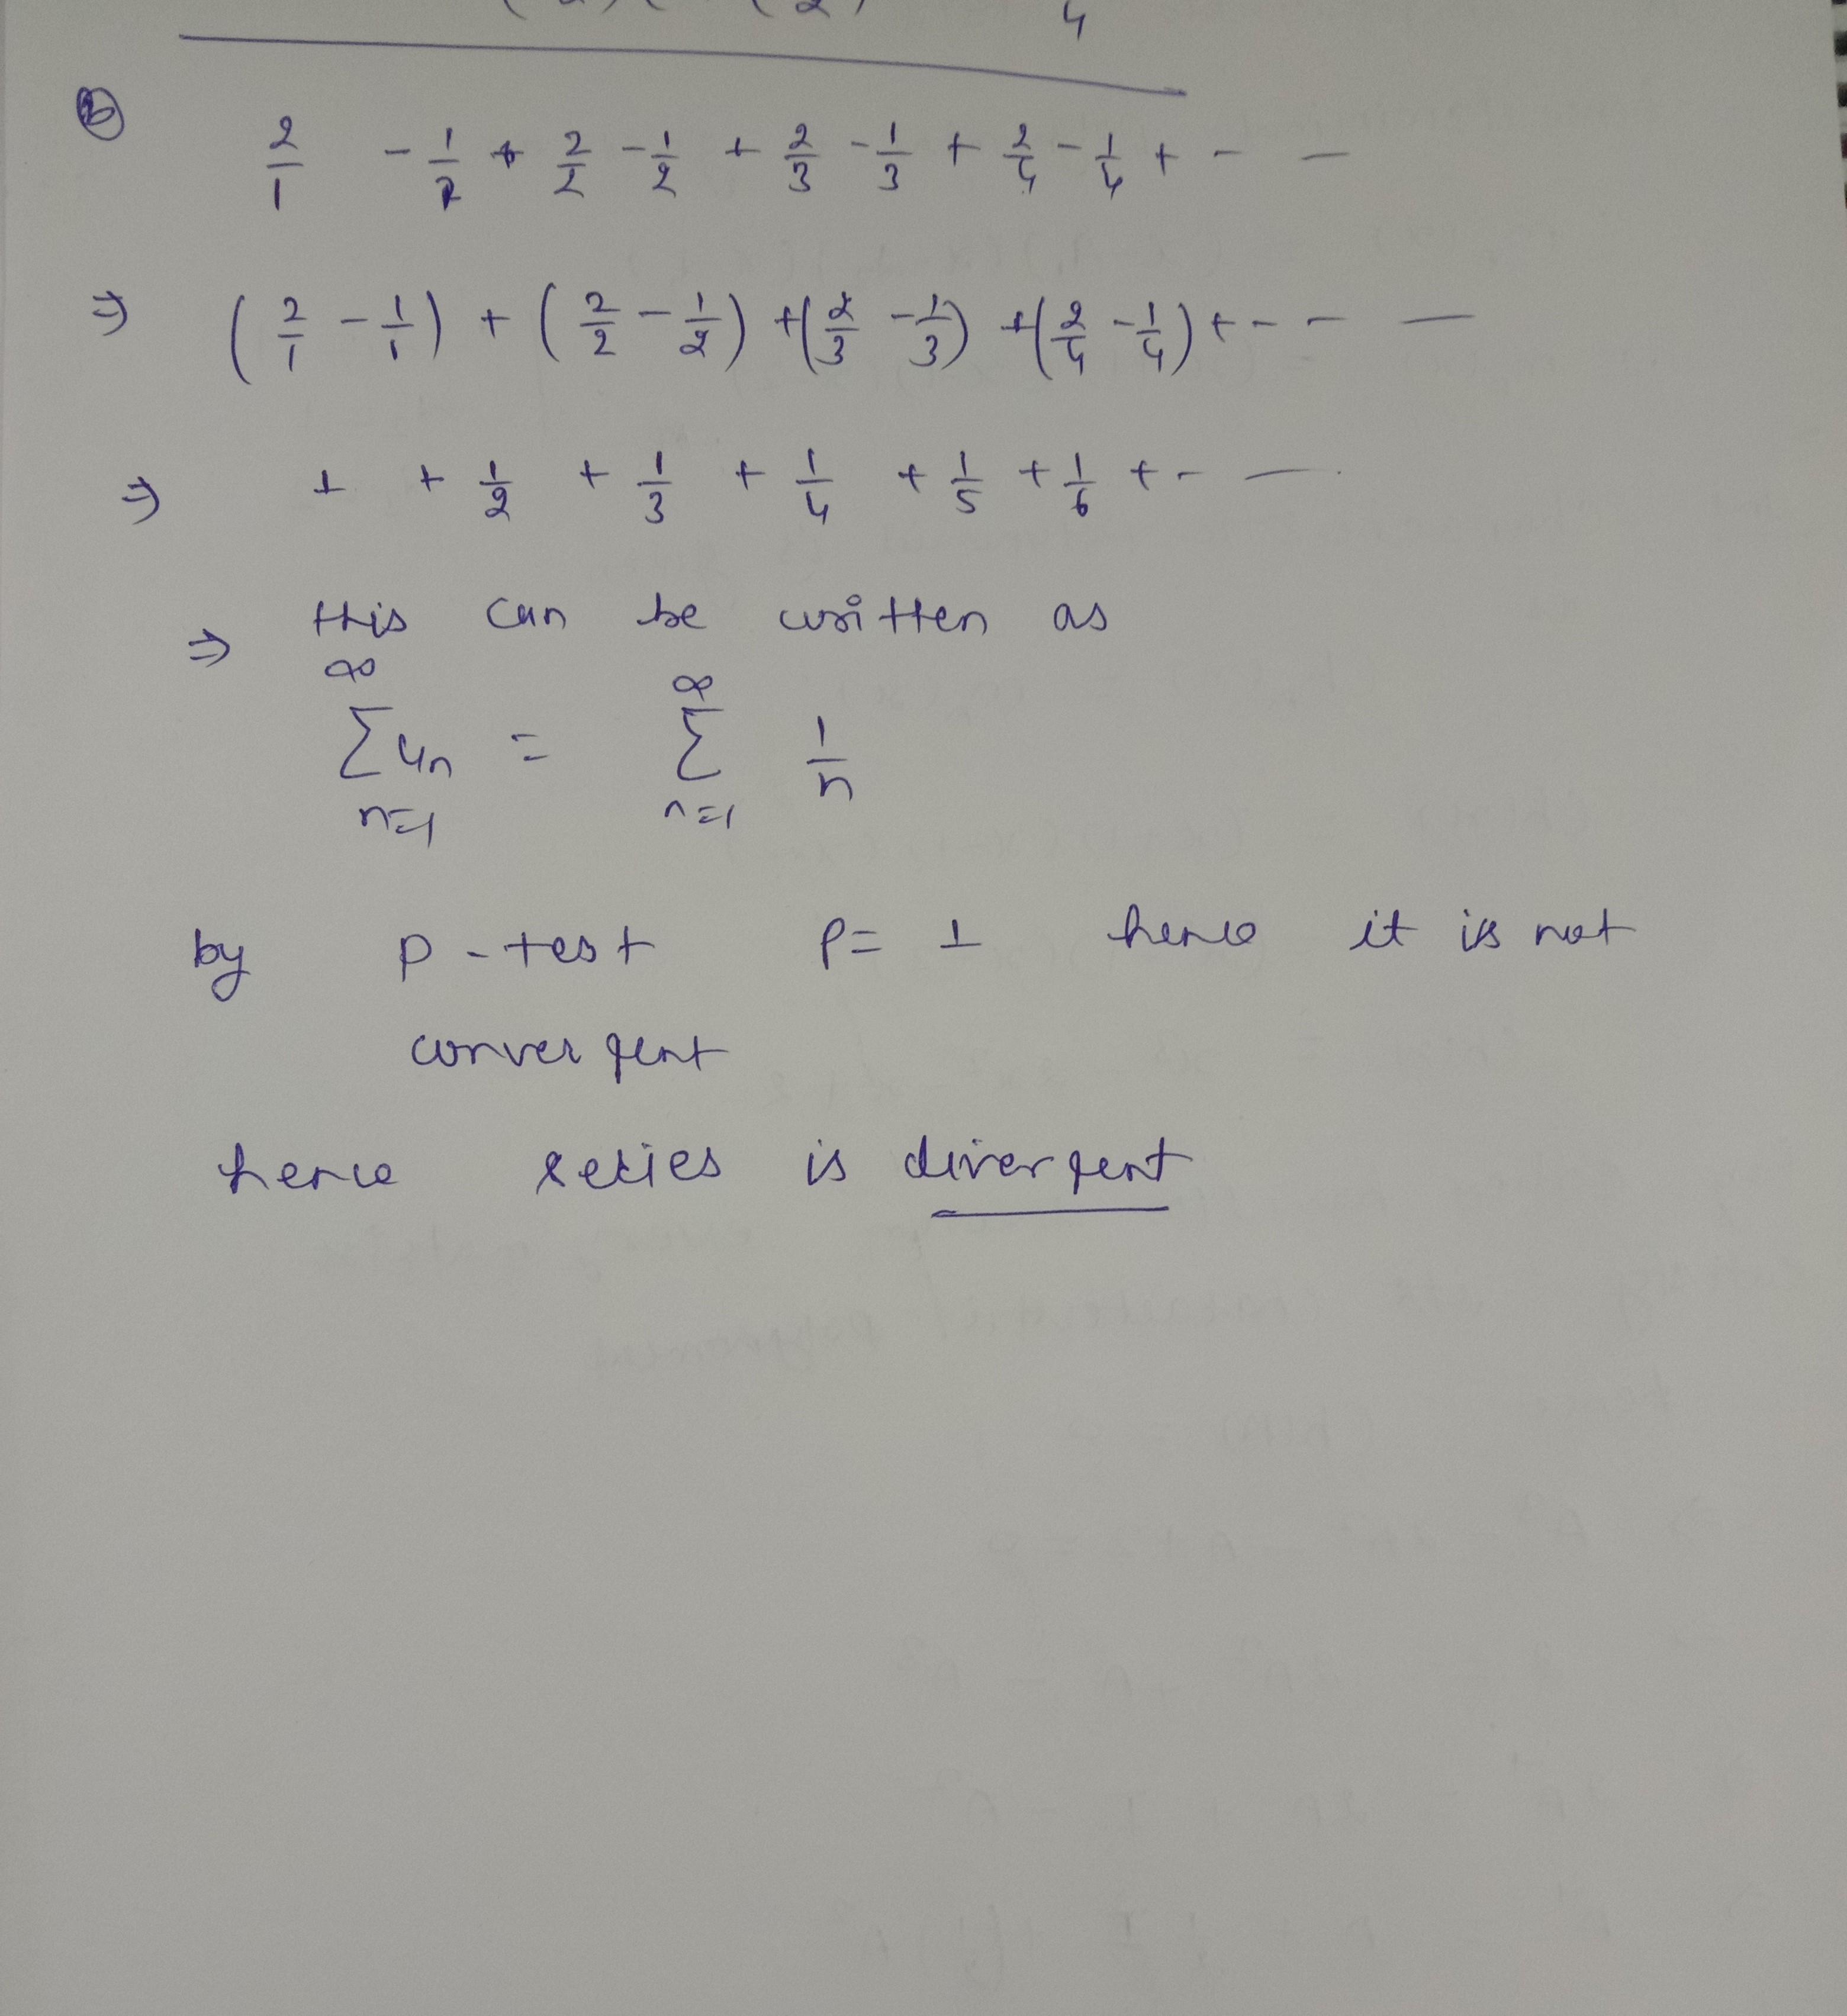 4
(b) 2/1 - 1/2 + 2/2 - 1/2 + 2/3 - 1/3 + 2/4 - 1/4 + - -
⇒ (2/1 - 1/1) + (2/2 - 1/2) + (2/3 - 1/3) + (2/4 - 1/4) + - - -
⇒ 1 + 1/2 + 1/3 + 1/4 + 1/5 + 1/6 + - -
⇒ this can be written as
∞ ∞
∑ un = ∑ 1/n
n=1 n=1
by p-test p= 1 hence it is not
convergent
hence series is divergent